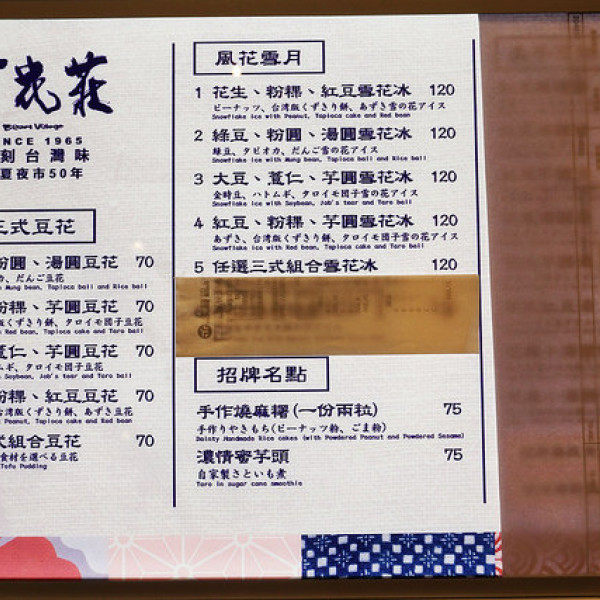 光莊
SINCE 1965
刻台灣味
夏夜市50年
三式豆花
粉圓、湯圓豆花 70
カ、だんご豆花
Mung bean, Tapioca ball and Rice ball
粉粿、芋圓豆花 70
版くずきり餅、タロイモ団子豆花
Red bean, Tapioca cake and Taro ball
薏仁、芋圓豆花 70
ムギ、タロイモ団子豆花
Soybean, Job's tear and Taro ball
粉粿、紅豆豆花 70
台湾版くずきり餅、あずき豆花
Peanut, Tapioca cake and Red bean
式組合豆花 70
食材を選べる豆花
Tofu Pudding
風花雪月
1 花生、粉粿、紅豆雪花冰 120
ピーナッツ、台湾版くずきり餅、あずき雪の花アイス
Snowflake ice with Peanut, Tapioca cake and Red bean
2 綠豆、粉圓、湯圓雪花冰 120
緑豆、タピオカ、だんご雪の花アイス
Snowflake ice with Mung bean, Tapioca ball and Rice ball
3 大豆、薏仁、芋圓雪花冰 120
金時豆、ハトムギ、タロイモ団子雪の花アイス
Snowflake ice with Soybean, Job's tear and Taro ball
4 紅豆、粉粿、芋圓雪花冰 120
あずき、台湾版くずきり餅、タロイモ団子雪の花アイス
Snowflake ice with Red bean, Tapioca cake and Taro ball
5 任選三式組合雪花冰 120
招牌名點
手作燒麻糬(一份兩粒) 75
手作りやきもち(ピーナッツ粉、ごま粉)
Daisty Handmade Rice cakes (with Powdered Peanut and Powdered Sesame)
濃情蜜芋頭 75
自家製さといも煮
Taro in sugar cane smoothie